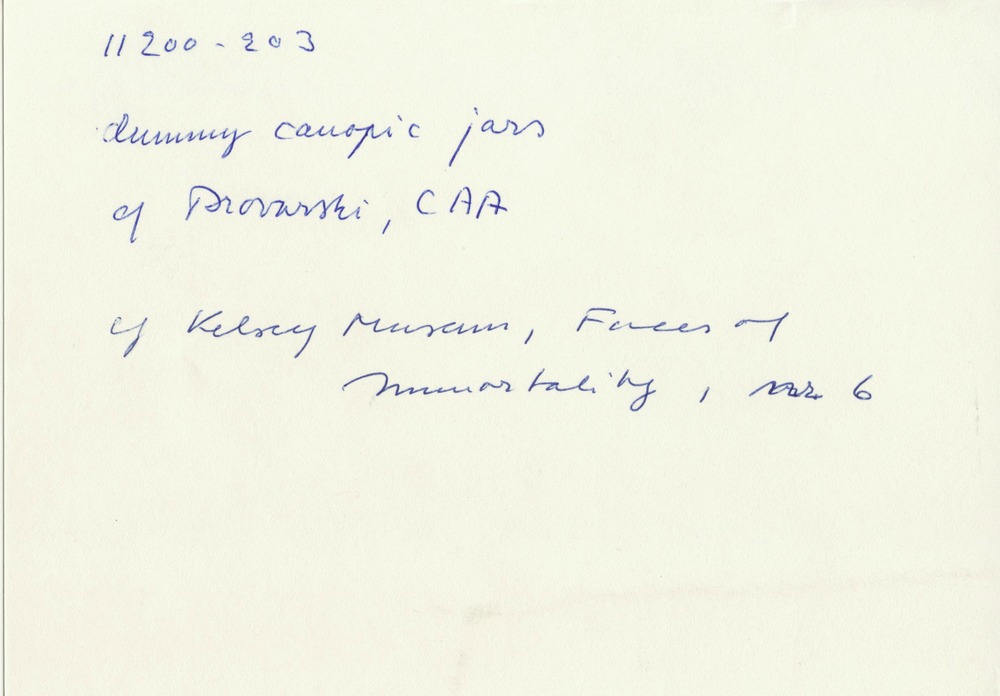 11200-203
dummy canopic jars
cf Brovarski, CAA
cf Kelsey Museum, Faces of
Immortality, nr. 6